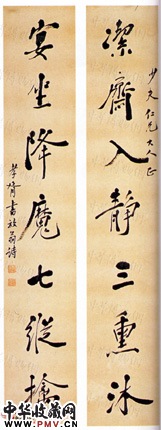 潔齋入靜三熏沐
少文仁兄大人正
宴坐降魔七縱擒
孝胥書放翁詩
中华收藏网
www.PMV.CN